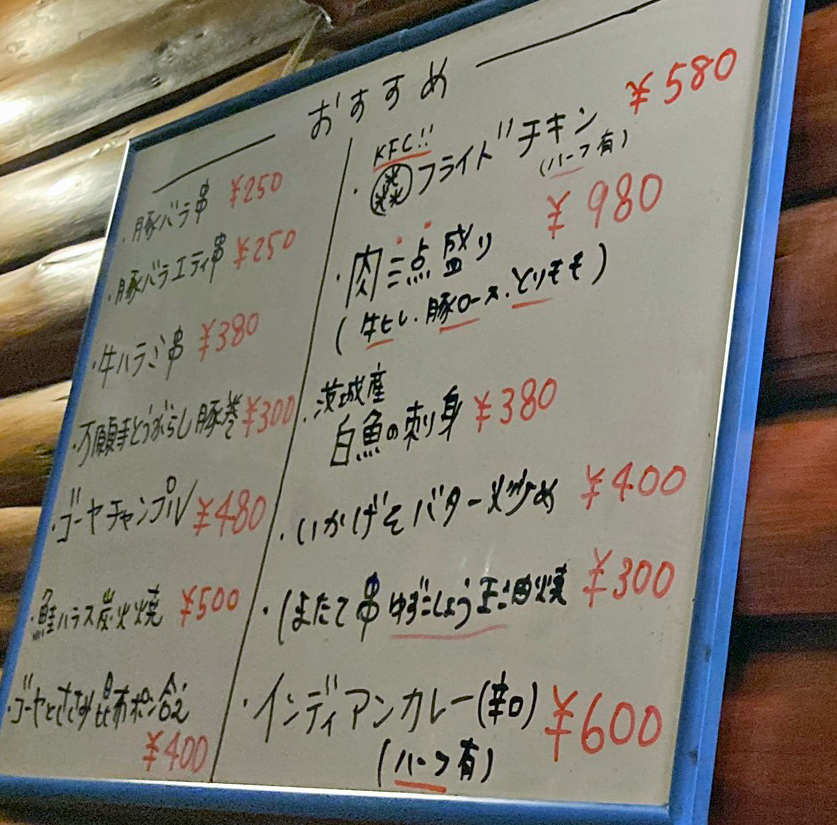 おすすめ
・豚バラ串 ¥250
・豚バラエティ串 ¥250
・牛ハラミ串 ¥380
・万願寺とうがらし豚巻 ¥300
・ゴーヤチャンプル ¥480
・鮭ハラス炭火焼 ¥500
・ゴーヤとささみ昆布ポン合え
¥400
KFC!!
・フライドチキン ¥580
(ハーフ有)
・肉三点盛り ¥980
(牛ヒレ・豚ロース・とりもも)
・茨城産
白魚の刺身 ¥380
・いかげそバター炒め ¥400
・ほたて串ゆずこしょう正油焼 ¥300
・インディアンカレー(辛口) ¥600
(ハーフ有)